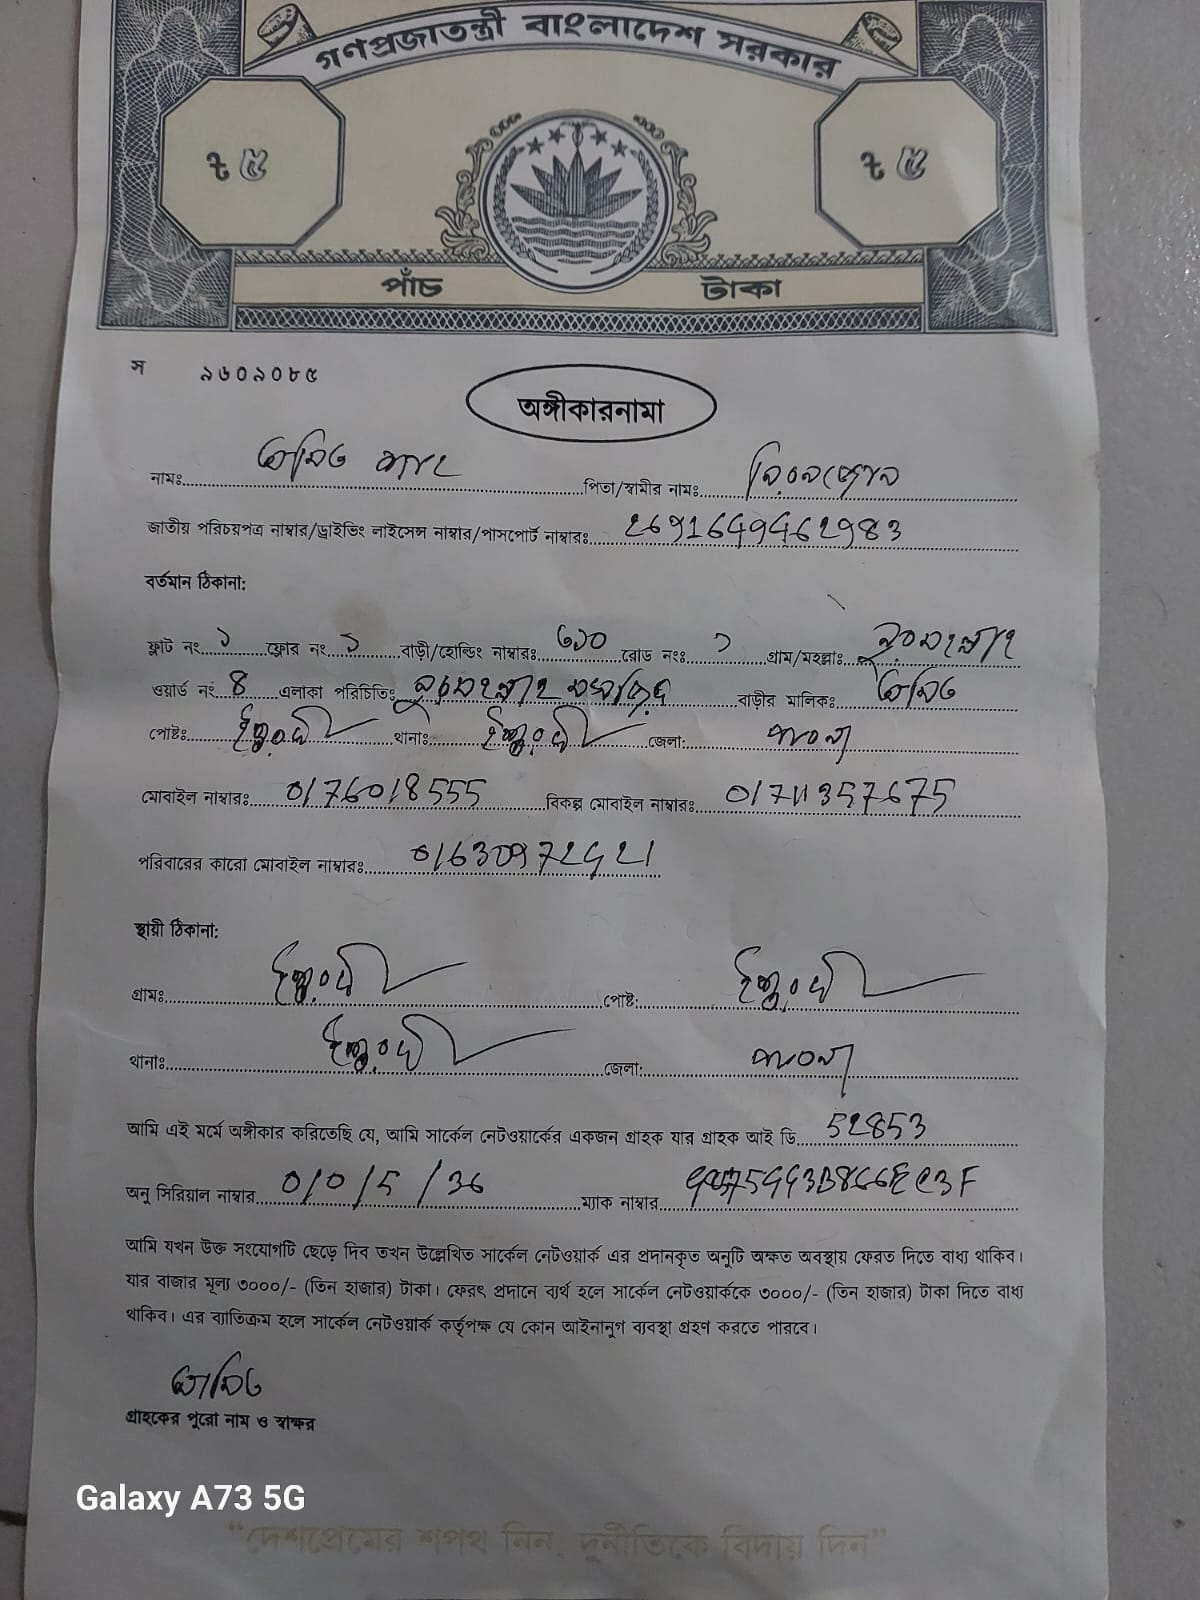 গণপ্রজাতন্ত্রী বাংলাদেশ সরকার
৳ ৫ ৳ ৫
পাঁচ টাকা
স ৯৬০৯০৮৫
অঙ্গীকারনামা
নামঃ পিতা/স্বামীর নামঃ
জাতীয় পরিচয়পত্র নাম্বার/ড্রাইভিং লাইসেন্স নাম্বার/পাসপোর্ট নাম্বারঃ
বর্তমান ঠিকানা:
ফ্লাট নং ১ ফ্লোর নং ১ বাড়ী/হোল্ডিং নাম্বারঃ ৬১০ রোড নংঃ ১ গ্রাম/মহল্লাঃ
ওয়ার্ড নং 8 এলাকা পরিচিতিঃ বাড়ীর মালিকঃ
পোষ্টঃ ঈশ্বরদী থানাঃ ঈশ্বরদী জেলা: পাবনা
মোবাইল নাম্বারঃ 0176018555 বিকল্প মোবাইল নাম্বারঃ 01711357675
পরিবারের কারো মোবাইল নাম্বারঃ
স্থায়ী ঠিকানা:
গ্রামঃ ঈশ্বরদী পোষ্ট: ঈশ্বরদী
থানাঃ ঈশ্বরদী জেলা: পাবনা
আমি এই মর্মে অঙ্গীকার করিতেছি যে, আমি সার্কেল নেটওয়ার্কের একজন গ্রাহক যার গ্রাহক আই ডি 52853
অনু সিরিয়াল নাম্বার 0/0/5/36 ম্যাক নাম্বার
আমি যখন উক্ত সংযোগটি ছেড়ে দিব তখন উল্লেখিত সার্কেল নেটওয়ার্ক এর প্রদানকৃত অনুটি অক্ষত অবস্থায় ফেরত দিতে বাধ্য থাকিব।
যার বাজার মূল্য ৩০০০/- (তিন হাজার) টাকা। ফেরৎ প্রদানে ব্যর্থ হলে সার্কেল নেটওয়ার্ককে ৩০০০/- (তিন হাজার) টাকা দিতে বাধ্য
থাকিব। এর ব্যাতিক্রম হলে সার্কেল নেটওয়ার্ক কর্তৃপক্ষ যে কোন আইনানুগ ব্যবস্থা গ্রহণ করতে পারবে।
গ্রাহকের পুরো নাম ও স্বাক্ষর
Galaxy A73 5G
“দেশপ্রেমের শপথ নিন, দুর্নীতিকে বিদায় দিন”